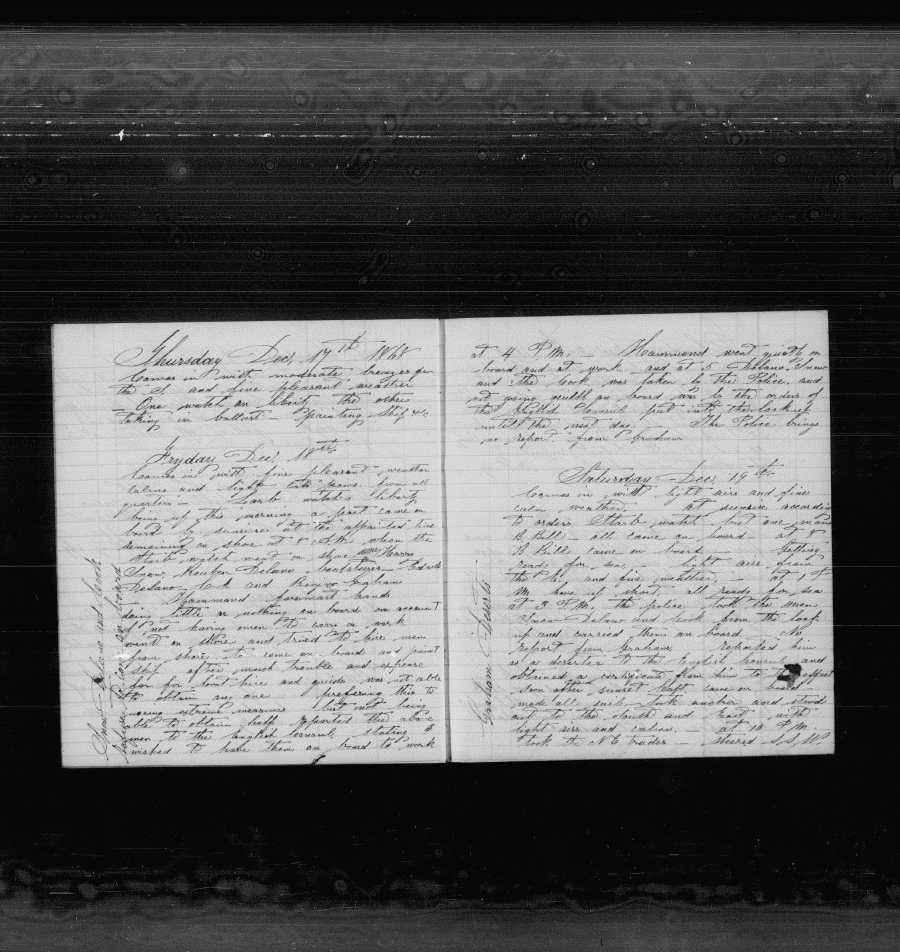 Thursday Dec 17th 1868
Comes in with moderate breezes from
the E and fine pleasant weather
One watch on liberty the others
taking in ballast painting Ship &c
Fryday Dec 18th
Comes in with fine pleasant weather
calms and light airs from all
quarters Larb watch's liberty
being up this morning a part came on
board by sunrise at the appointed time
remaining on shore at 8 A.M. when the
Starb watch went on shore
Snow, Reuben Delano boatsteerer
Delano Cook and Graham
Hammand foremast hands
doing little or nothing on board on account
of not having men to carry on work
went on shore and tried to hire men
from shore to come on board and paint
ship after much trouble and expense
for boat hire and guide was not able
to obtain any one prefering this to
using extreme measures but not being
able to obtain help reported the above
men to the English Consul, stating I
wished to have them on board to work
Snow Delano and Cook
refuse to come on board
at 4 P.M. Hammand went quietly on
board and at work and at 5 Delano, Snow
and the Cook was taken by the Police and
not going quietly on board was by the orders of
the English Consul put into the lockup
untill the next day. The Police brings
no report from Graham
Saturday Dec 19th
Comes in with light airs and fine
calm weather. At sunrise according
to orders Starb watch but one man
B Bill all came on board at 8
B Bill came on board Getting
ready for sea light airs from
the E and fine weather. at 1 P
M hove up short, all ready for sea
at 2 P.M. the police took the men
Snow Delano and Cook from the lock
up and carried them on board. No
report from Graham reported him
as a deserter to the English Consul and
obtained a certificate from him to
soon after sunset Capt came on board
made all sail took anchor and stood
out to the South and East with
light airs and calms at 10 P.M.
took the NE trades steered S.S.W.
Graham Deserts